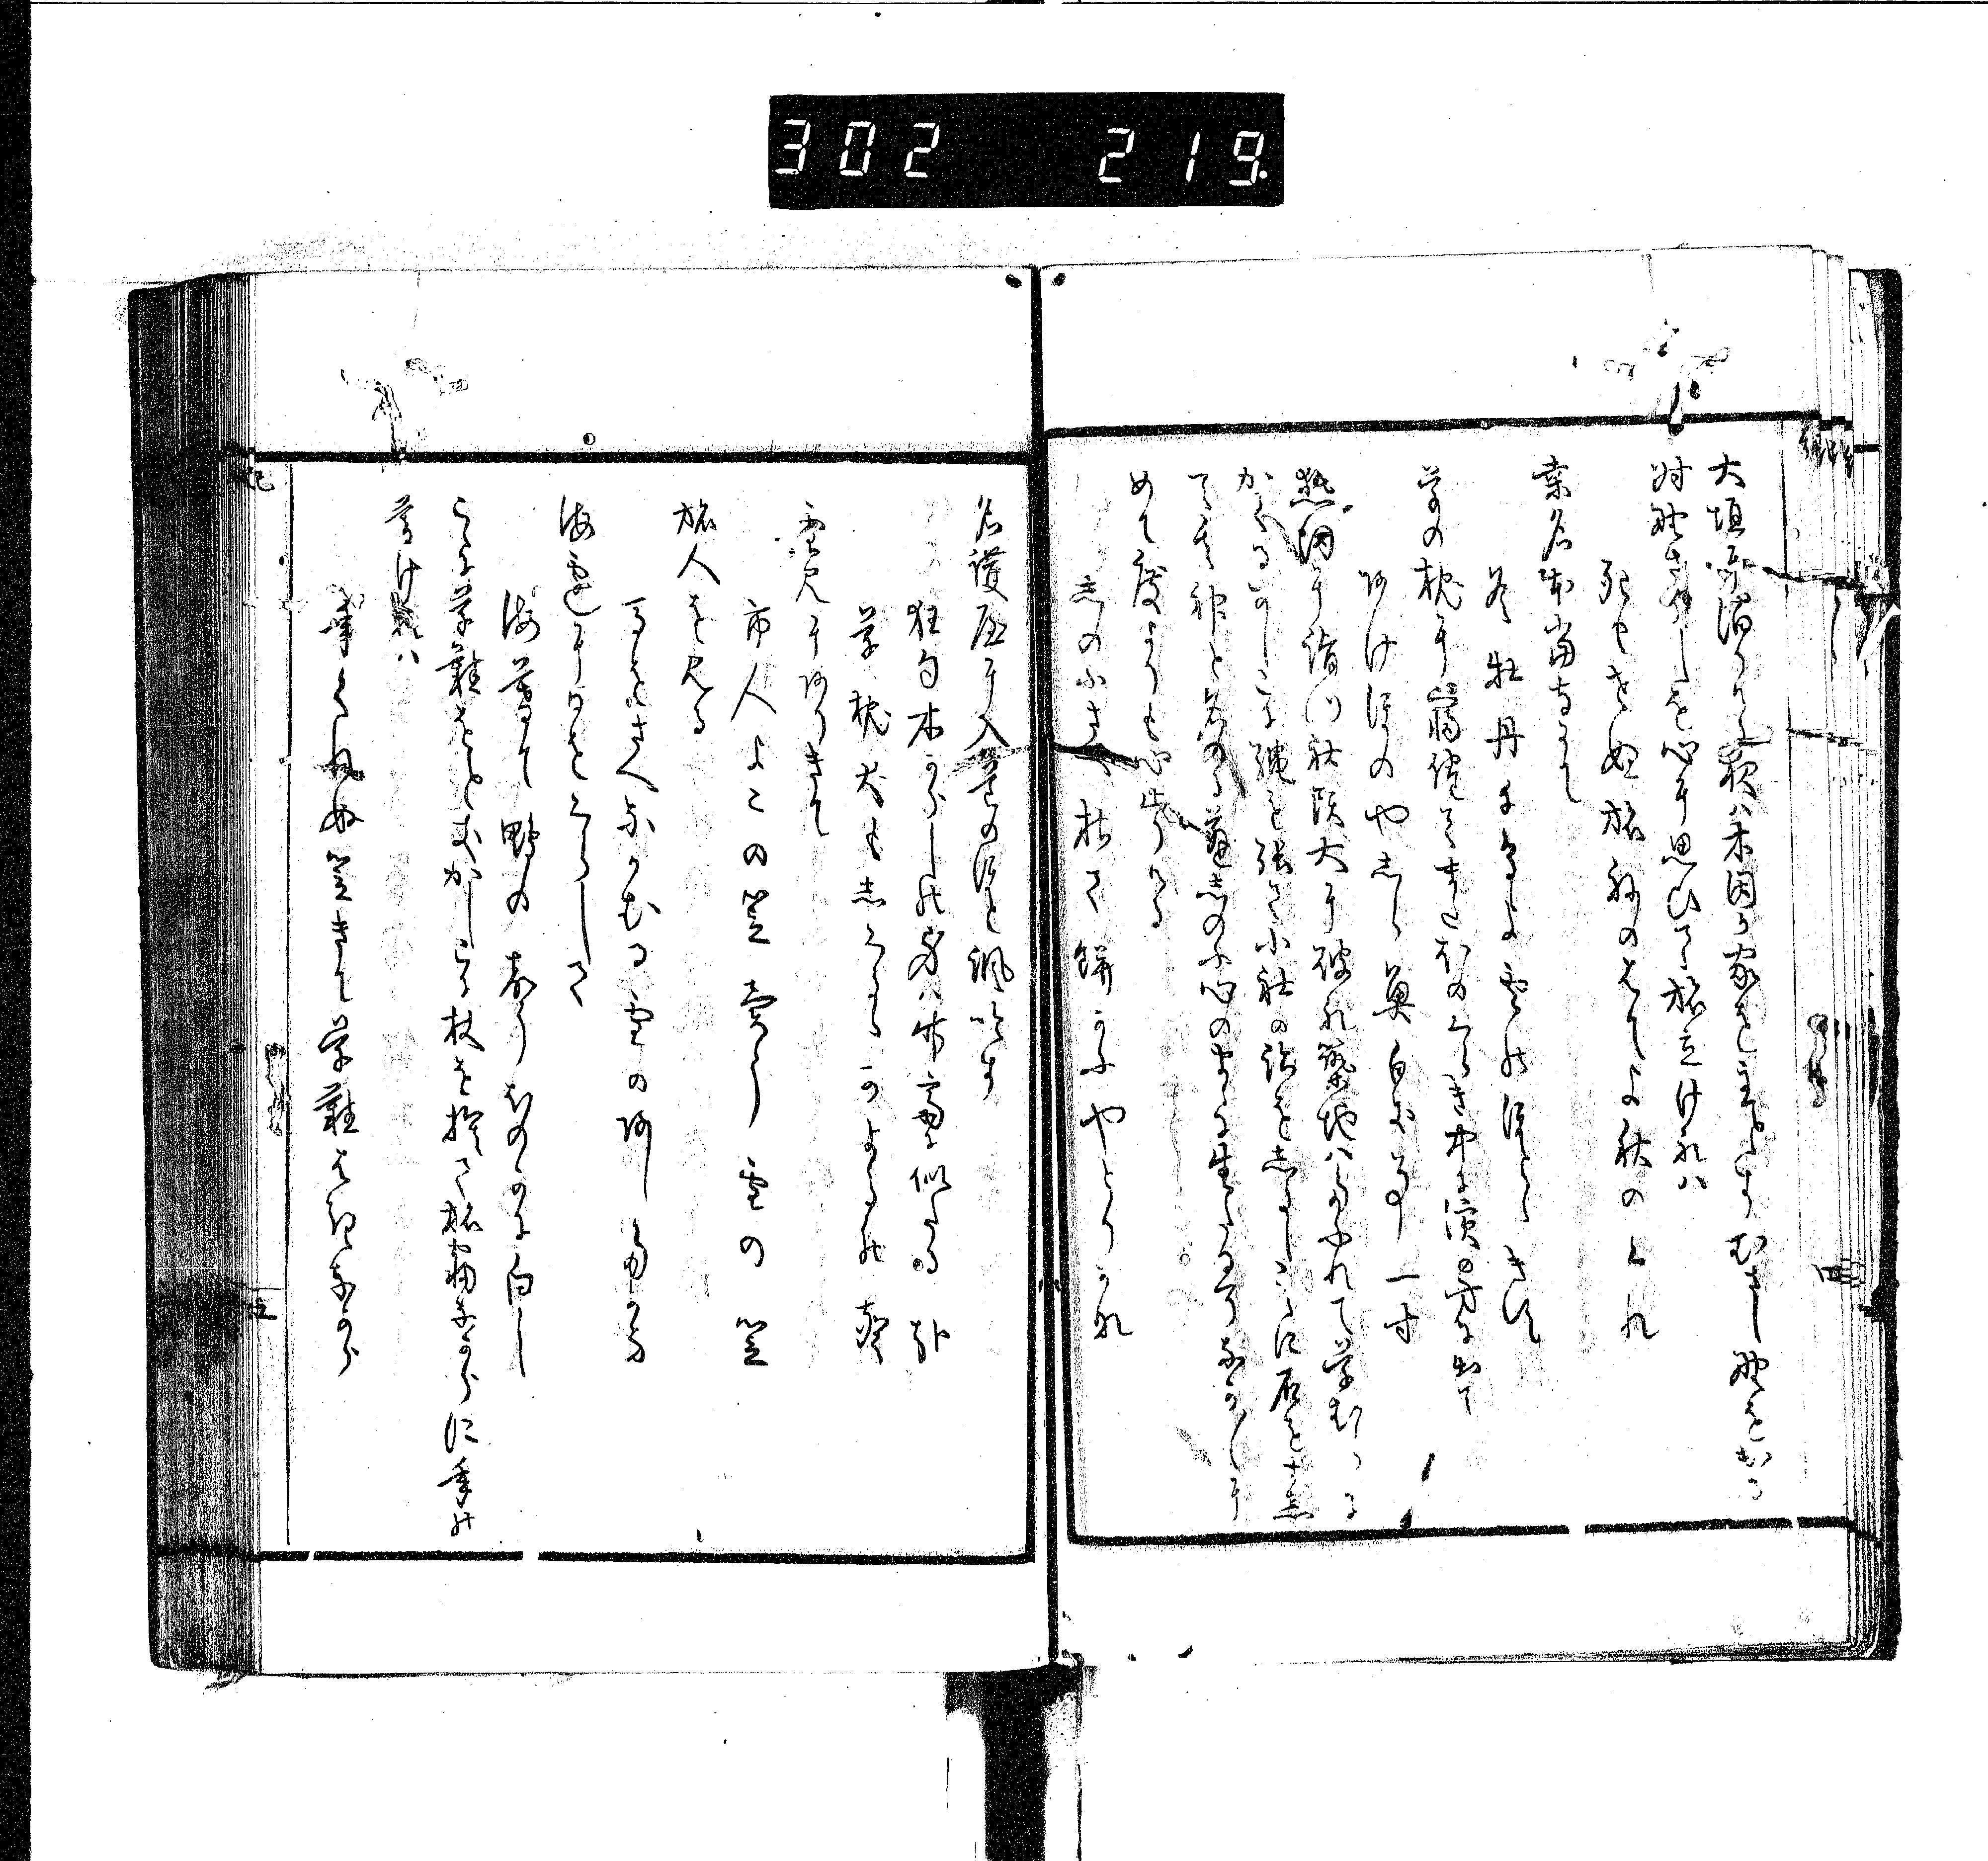 302 219
大垣に泊りける夜は木因か家をあるしとすむさし野を出る
時野さらしを心に思ひて旅立けれハ
死もせぬ旅ねのはてよ秋のくれ
桑名本当寺にて
冬牡丹千鳥よ雪のほとゝきす
草の枕に寝侘てまたほのくらき中に濱の方に出て
明けほのやしら魚白き事一寸
熱田に詣つ社頭大に破れ築地ハたふれて草むらに
かくるかしこに縄を張て小社の跡をしるしこゝに石をすえ
て其神と名のる蓬しのふ心のまゝに生たるそ中〳〵に
めて度よりも心とゝまる
しのふさへ枯て餅かふやとりかな
名護屋に入道のほと諷吟す
狂句木からしの身ハ竹斎に似たる哉
草枕犬も志くるゝかよるの声
雪見にありきて
市人よこの笠売らう雪の笠
旅人を見る
馬をさへなかむる雪のあしたかな
海邊に日をくらして
海暮て鴨の声ほのかに白し
こゝに草鞋をときかしこに杖を捨て旅寝なからに年の
暮けれハ
年くれぬ笠きて草鞋はきなから